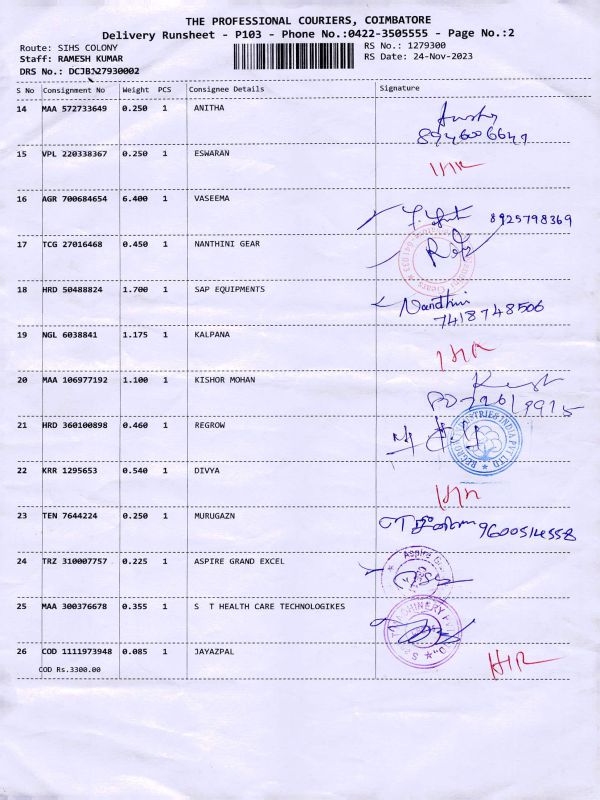 THE PROFESSIONAL COURIERS, COIMBATORE
Delivery Runsheet - P103 - Phone No.:0422-3505555 - Page No.:2
Route: SIHS COLONY RS No.: 1279300
Staff: RAMESH KUMAR RS Date: 24-Nov-2023
DRS No.: DCJB127930002
S No Consignment No Weight PCS Consignee Details Signature
14 MAA 572733649 0.250 1 ANITHA
15 VPL 220338367 0.250 1 ESWARAN
16 AGR 700684654 6.400 1 VASEEMA 8925798369
17 TCG 27016468 0.450 1 NANTHINI GEAR
18 HRD 50488824 1.700 1 SAP EQUIPMENTS Nandhini
7418748506
19 NGL 6038841 1.175 1 KALPANA
20 MAA 106977192 1.100 1 KISHOR MOHAN
21 HRD 360100898 0.460 1 REGROW
22 KRR 1295653 0.540 1 DIVYA
23 TEN 7644224 0.250 1 MURUGAZN 9600514558
24 TRZ 310007757 0.225 1 ASPIRE GRAND EXCEL
25 MAA 300376678 0.355 1 S T HEALTH CARE TECHNOLOGIKES
26 COD 1111973948 0.085 1 JAYAZPAL
COD Rs.3300.00